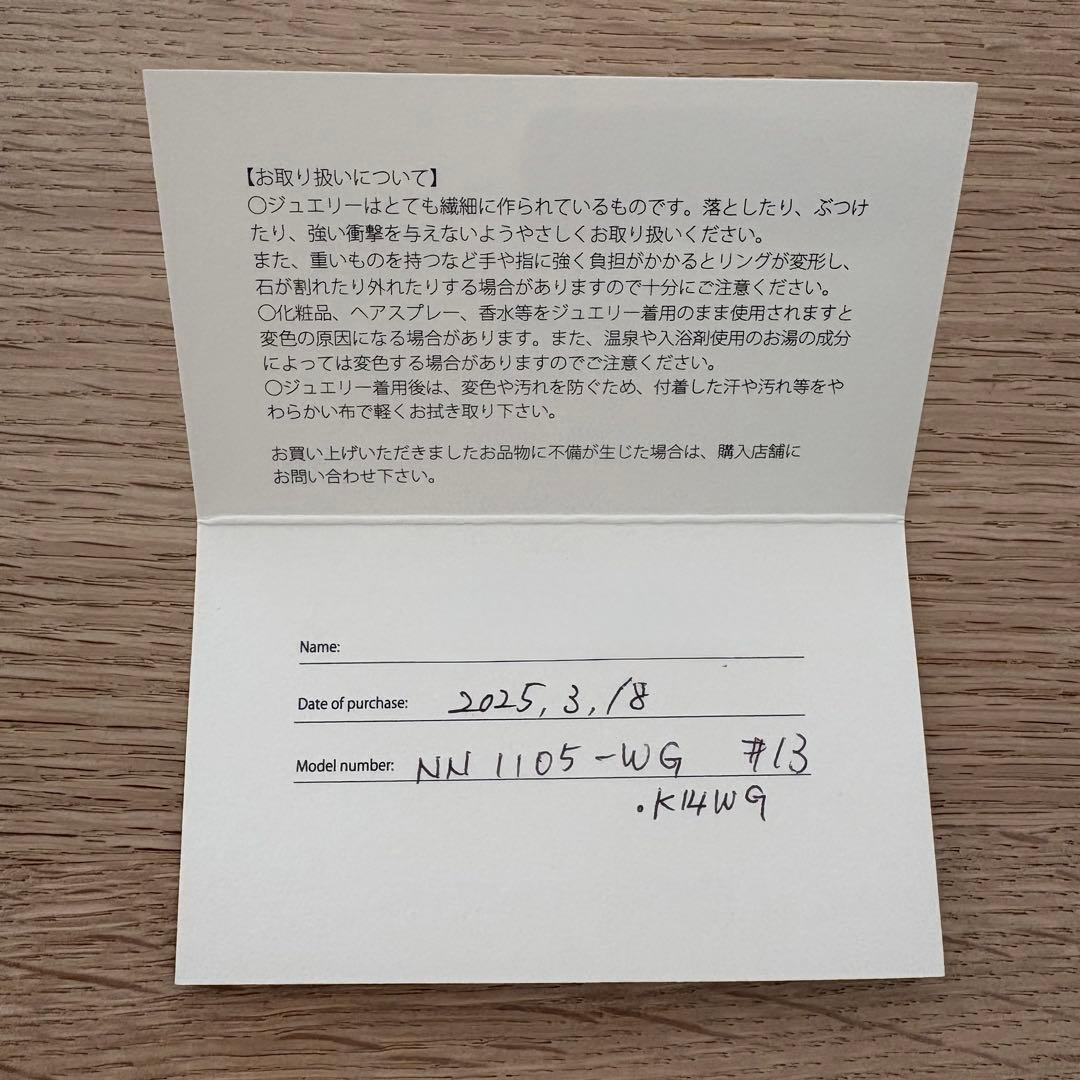 【お取り扱いについて】
〇ジュエリーはとても繊細に作られているものです。落としたり、ぶつけ
たり、強い衝撃を与えないようやさしくお取り扱いください。
また、重いものを持つなど手や指に強く負担がかかるとリングが変形し、
石が割れたり外れたりする場合がありますので十分にご注意ください。
〇化粧品、ヘアスプレー、香水等をジュエリー着用のまま使用されますと
変色の原因になる場合があります。また、温泉や入浴剤使用のお湯の成分
によっては変色する場合がありますのでご注意ください。
〇ジュエリー着用後は、変色や汚れを防ぐため、付着した汗や汚れ等をや
わらかい布で軽くお拭き取り下さい。
お買い上げいただきましたお品物に不備が生じた場合は、購入店舗に
お問い合わせ下さい。
Name:
Date of purchase: 2025,3,18
Model number: NN1105-WG #13
.K14WG